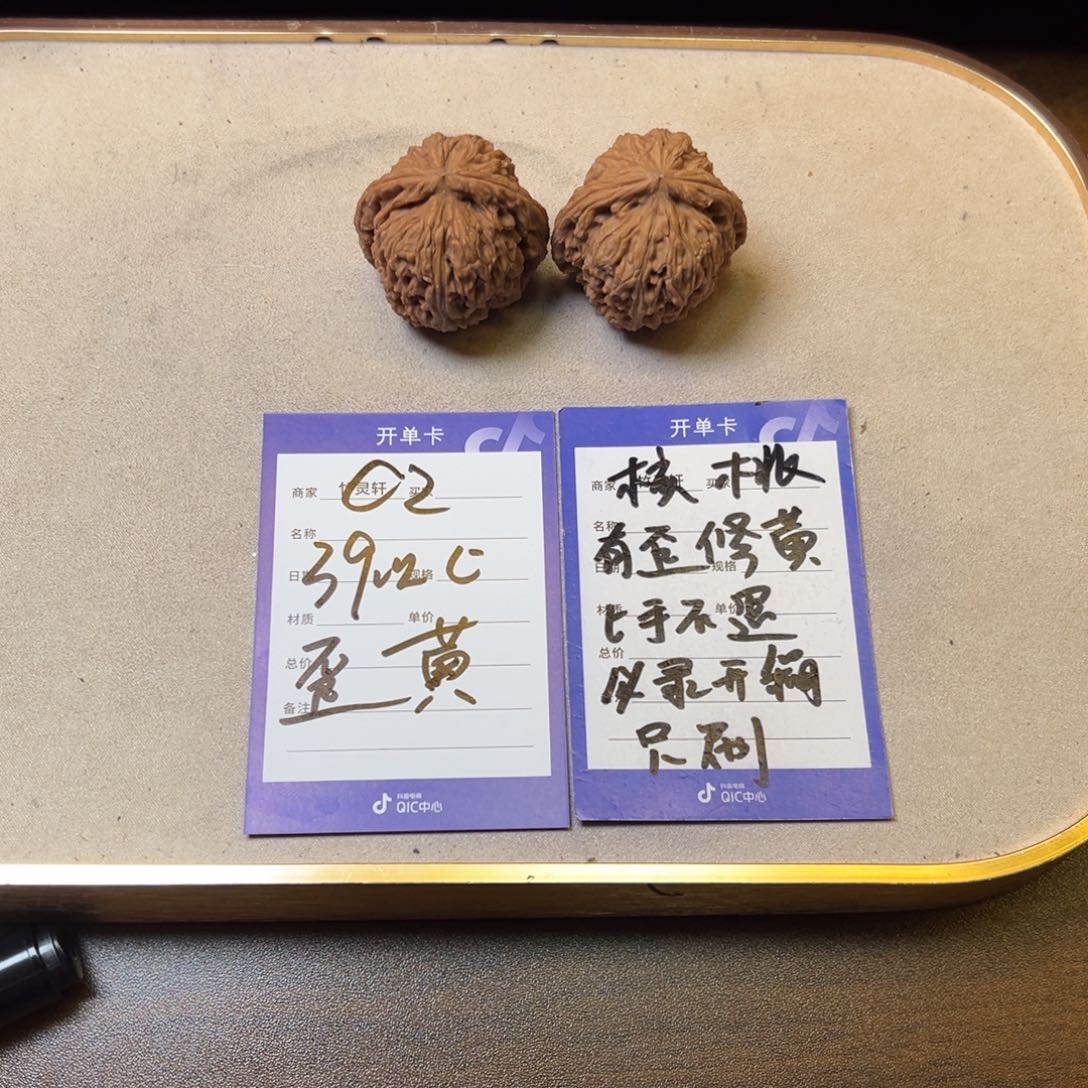 开单卡
商家 竹灵轩 买家
02
名称
39 mm C
日期 规格
材质 单价
歪 黄
总价
备注
抖音电商
QIC中心
开单卡
商家 竹灵轩 买家
核桃
名称
有歪修黄
日期 规格
上手不退
材质 单价
总价
必录开
只刷
抖音电商
QIC中心